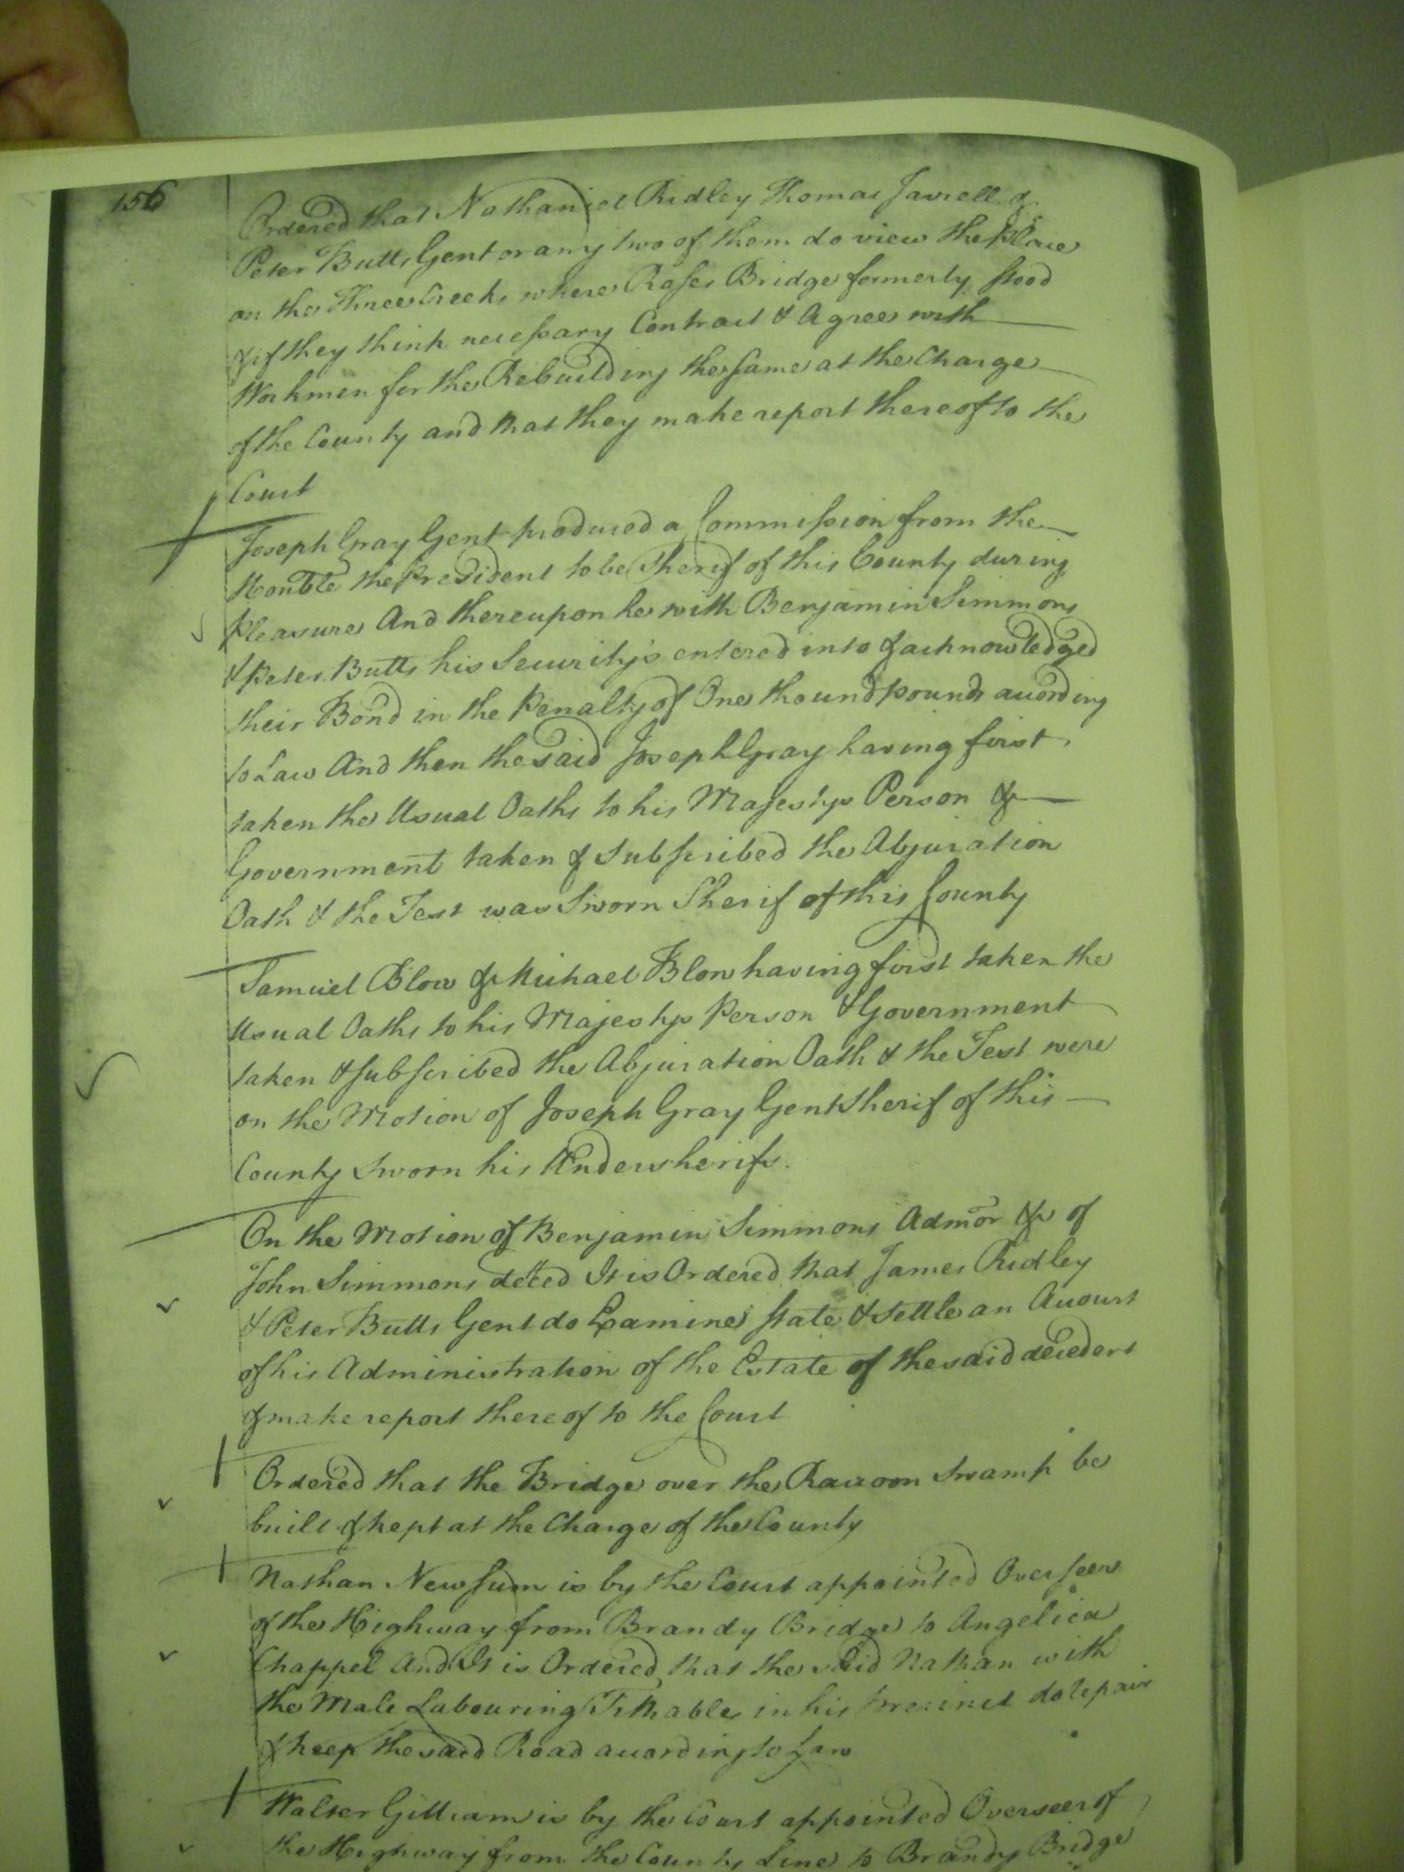 156
Ordered that Nathaniel Ridley Thomas Jarrell &
Peter Butts Gent or any two of them do view the Place
on the Three Creeks where Roses Bridge formerly stood
& if they think necessary Contract & Agree with
Workmen for the Rebuilding the same at the Charge
of the County and that they make report thereof to the
Court
Joseph Gray Gent produced a Commission from the
Honble the President to be Sherif of this County during
Pleasure And thereupon he with Benjamin Simmons
& Peter Butts his Securitys entered into & acknowledged
their Bond in the Penalty of One thound pounds according
to Law And then the said Joseph Gray having first
taken the Usual Oaths to his Majestys Person &
Government taken & subscribed the Abjuration
Oath & the Test was Sworn Sherif of this County
Samuel Blow & Michael Blow having first taken the
Usual Oaths to his Majestys Person & Government
taken & subscribed the Abjuration Oath & the Test were
on the Motion of Joseph Gray Gent Sherif of this
County Sworn his Undersherifs.
On the Motion of Benjamin Simmons Admor &c of
John Simmons deced It is Ordered that James Ridley
& Peter Butts Gent do Examine state & settle an Account
of his Administration of the Estate of the said decedent
& make report thereof to the Court
Ordered that the Bridge over the Raccoon Swamp be
built & kept at the Charge of the County
Nathan Newsum is by the Court appointed Overseer
of the Highway from Brandy Bridge to Angelica
Chappel And It is Ordered that the said Nathan with
the Male Labouring Tithables in his Precinct do repair
& keep the said Road according to Law
Walter Gilliam is by the Court appointed Overseer of
the Highway from the County Line to Brandy Bridge